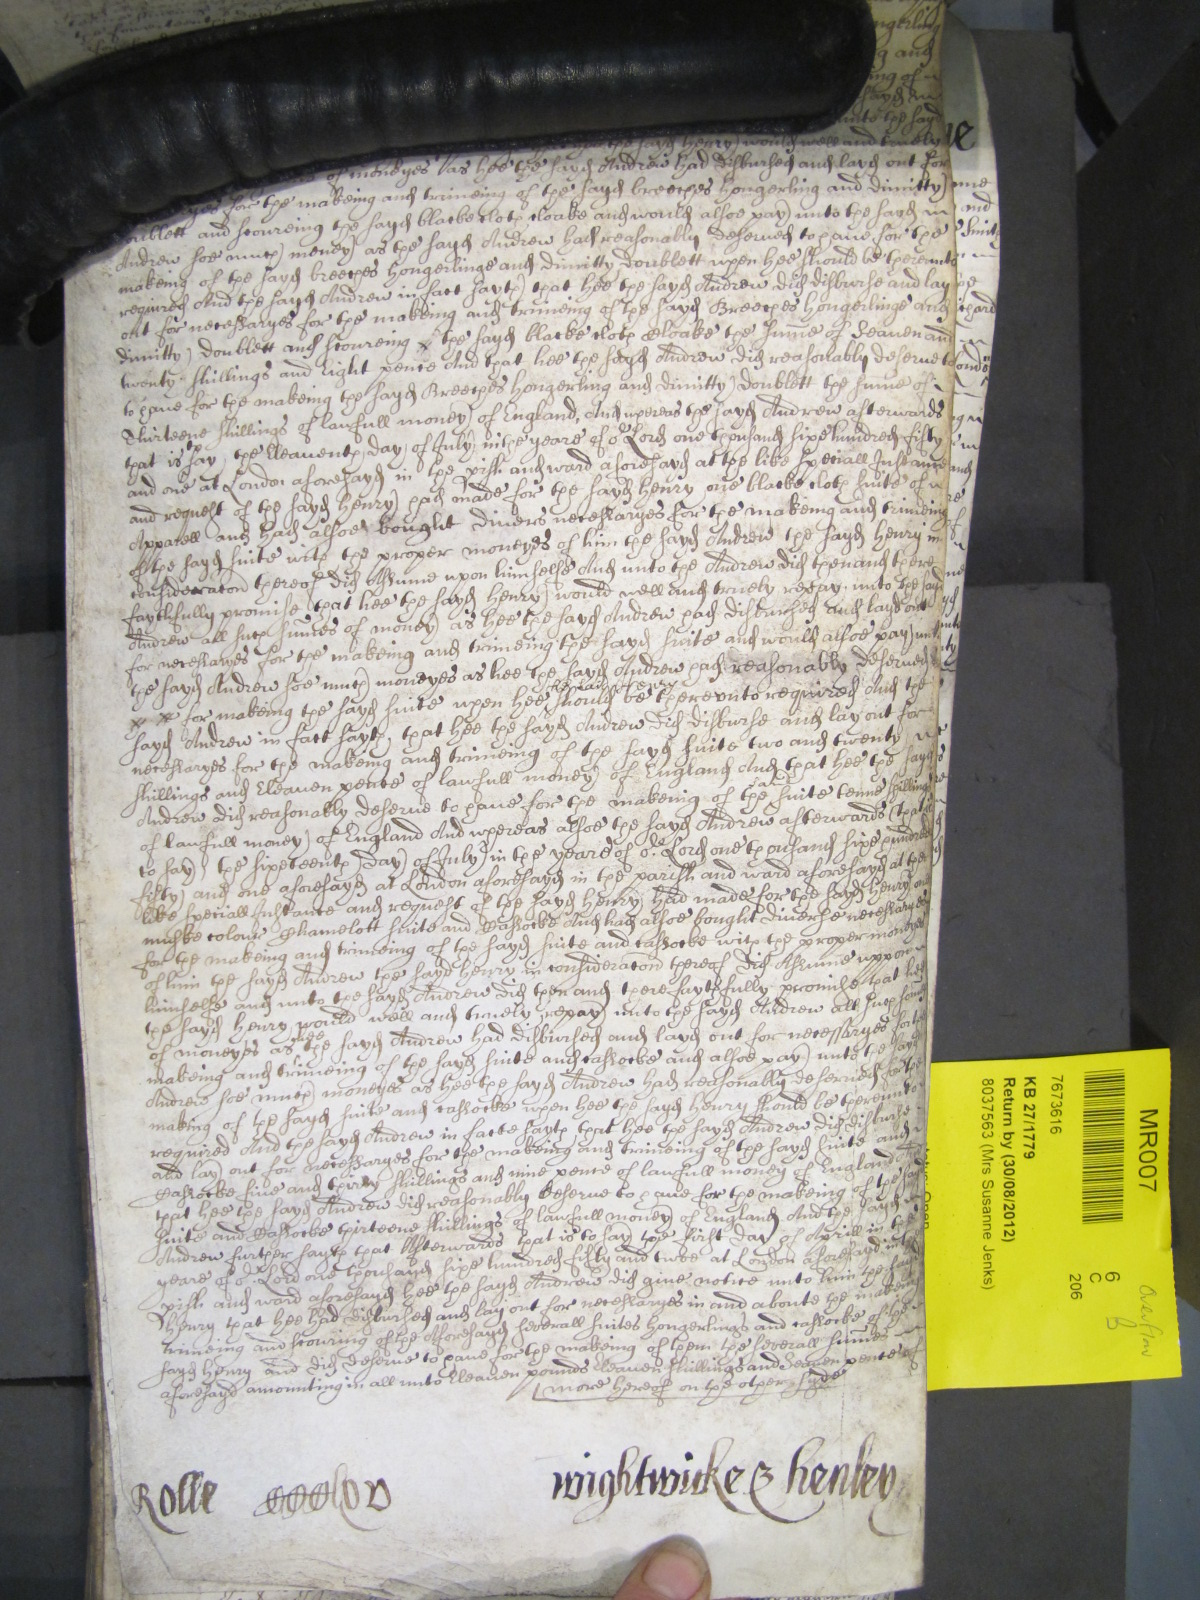 the sayd Henry would well and truely
of moneyes as hee the sayd Andrew had disbursed and layd out for
for the makeing and trimeing of the sayd breeches hongerling and dimitty
doublett and scoureing the sayd blacke cloth cloake and would alsoe pay unto the sayd
Andrew soe much money as the sayd Andrew had reasonably deserved to have for the
makeing of the sayd breeches hongerlinge and dimitty doublett when hee should be thereunto
required And the sayd Andrew in fact sayth that hee the sayd Andrew did disburse and lay
out for necessaryes for the makeing and trimeing of the sayd Breeches Hongerlinge and
dimitty doublett and scoureing the sayd blacke cloth Cloake the summe of Seaven and
twenty shillings and Eight pence And that hee the sayd Andrew did reasonably deserve
to have for the makeing the sayd Breeches hongerling and dimitty doublett the summe of
Thirteene shillings of lawfull money of England, And whereas the sayd Andrew afterwards
that is to say the Eleaventh day of July in the yeare of or Lord one thousand sixe hundred fifty
and one at London aforesayd in the pish and ward aforesayd at the like speciall Instance
and request of the sayd Henry had made for the sayd Henry one blacke cloth suite of
Apparell and had alsoe bought divers necessaryes for the makeing and trimeing
of the sayd suite with the proper moneyes of him the sayd Andrew the sayd Henry in
consideracon thereof did Assume upon himselfe And unto the Andrew did then and there
faythfully promise that hee the sayd Henry would well and truely repay unto the sayd
Andrew all such summes of money as hee the sayd Andrew had disbursed and layd out
for necessaryes for the makeing and trimeing the sayd suite and would alsoe pay unto
the sayd Andrew soe much moneyes as hee the sayd Andrew had reasonably deserved
for makeing the sayd suite when hee the sayd Henry should be thereunto required And the
sayd Andrew in fact sayth, that hee the sayd Andrew did disburse and lay out for
necessaryes for the makeing and trimeing of the sayd suite two and twenty
shillings and Eleaven pence of lawfull money of England And that hee the sayd
Andrew did reasonably deserve to have for the makeing of the said suite tenne shillings
of lawfull money of England And whereas alsoe the sayd Andrew afterwards that is
to say the sixteenth day of July in the yeare of or Lord one thousand sixe hundred
fifty and one aforesayd at London aforesayd in the parish and ward aforesayd at the
like speciall Instance and request of the sayd Henry had made for the sayd Henry one
muske colour Chamelott suite and Cassocke And had alsoe bought diverse necessaryes
for the makeing and trimeing of the sayd suite and cassocke with the proper moneyes
of him the sayd Andrew the sayd Henry in consideracon thereof did Assume uppon
himselfe and unto the sayd Andrew did then and there faythfully promise that hee
the sayd Henry would well and truely repay unto the sayd Andrew all such somes
of moneyes as hee the sayd Andrew had disbursed and layd out for necessaryes for the
makeing and trimeing of the sayd suite and cassocke and alsoe pay unto the sayd
Andrew soe much moneyes as hee the sayd Andrew had reasonably deserved for the
making of the sayd suite and cassocke when hee the sayd Henry should be thereunto
required And the sayd Andrew in facte sayth that hee the sayd Andrew did disburse
and lay out for necessaryes for the makeing and trimeing of the sayd suite and
Cassocke five and thirty shillings and nine pence of lawfull money of England And
that hee the sayd Andrew did reasonably deserve to have for the makeing of the sayd
suite and Cassocke thirteene shillings of lawfull money of England And the sayd
Andrew further sayth that Afterwards that is to say the first day of Aprill in the
yeare of or Lord one thousand sixe hundred fifty and twoe at London aforesayd in the
pish and ward aforesayd hee the sayd Andrew did give notice unto him the sayd
Henry that hee had disbursed and lay out for necessaryes in and aboute the makeing
trimeing and scouring of the aforesayd severall suites hongerlings and cassocke of the
sayd Henry and did deserve to have for the makeing of them the severall summes
aforesayd amounting in all unto Eleaven pounds Eleaven shillings and Seaven pence of
more hereof on the other syde
Rolle
wightwicke & henley
MR007
6
C
206
7673616
KB 27/1779
Return by (30/08/2012)
8037563 (Mrs Susanne Jenks)